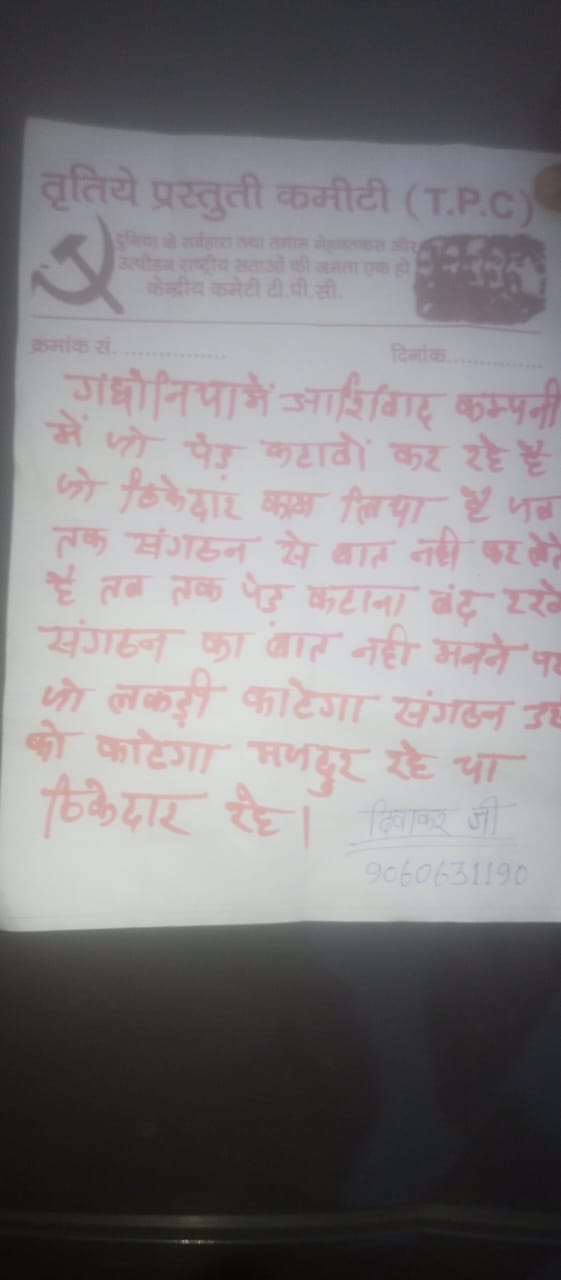 तृतिये प्रस्तुती कमीटी (T.P.C)
दुनिया के सर्वहारा तथा तमाम मेहनतकस और
उत्पीडन राष्ट्रीय सताओं की जनता एक हो
केन्द्रीय कमेटी टी.पी.सी.
क्रमांक सं. ............... दिनांक..............
में आर्शिवाद कम्पनी
में जो पेड़ कटावों कर रहे है
जो ठिकेदार काम लिया है जब
तक संगठन से बात नही कर लेते
है तब तक पेड़ कटाना बंद रखे
संगठन का बात नही मनने पर
जो लकड़ी काटेगा संगठन उस
को काटेगा मजदुर रहे या
ठिकेदार रहे।
दिवाकर जी
9060631190